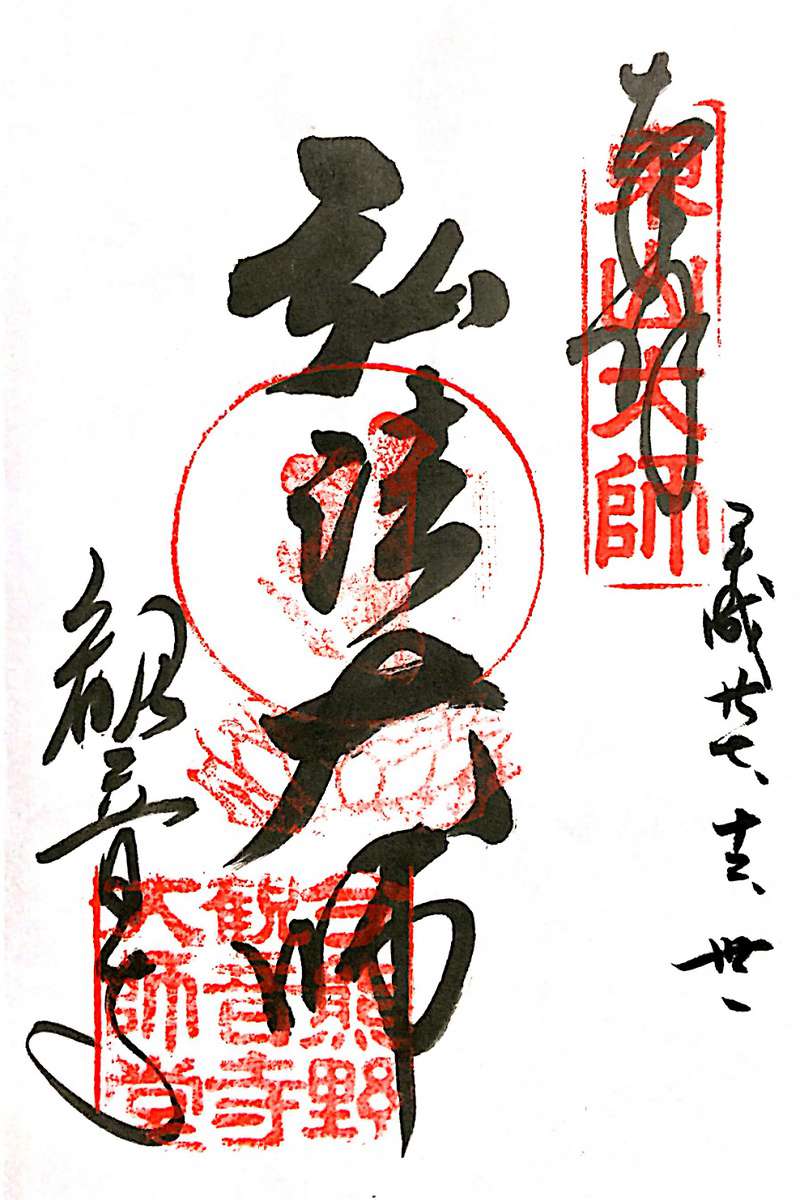 奉拝
東山大師
平成廿七、十二、丗一
弘法大師
今熊野
観音寺
大師堂
観音寺